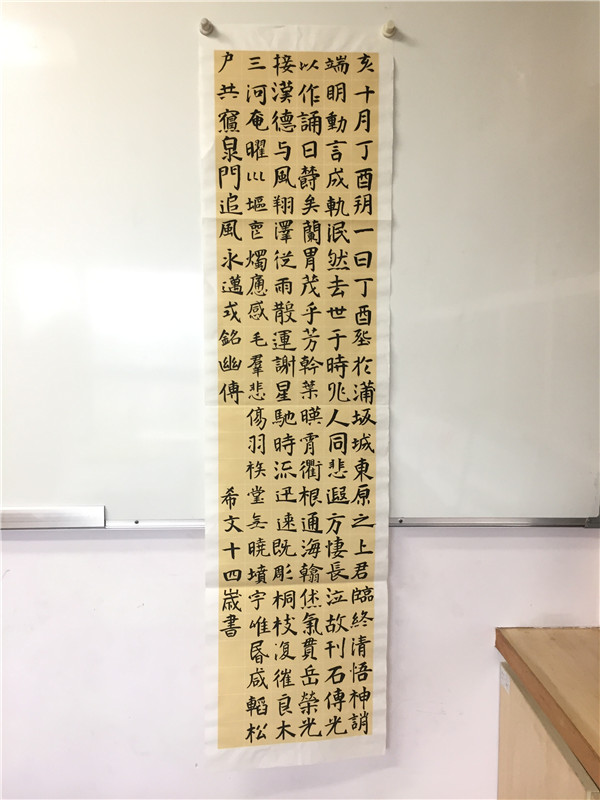 亥十月丁酉朔一日丁酉塟於蒲坂城東原之上君臨終清悟神誚
端明動言成軌泯然去世于時兆人同悲遐方悽長泣故刊石傳光
以作誦曰欝矣蘭胃茂乎芳幹葉暎霄衢根通海翰倐氣貫岳榮光
接漢德与風翔澤從雨散運謝星馳時流迅速既彫桐枝復摧良木
三河奄曜巛塸喪燭應感毛羣悲傷羽族堂無曉墳宇唯昬咸轀松
户共寢泉門追風永邁式銘幽傳
希文十四歲書